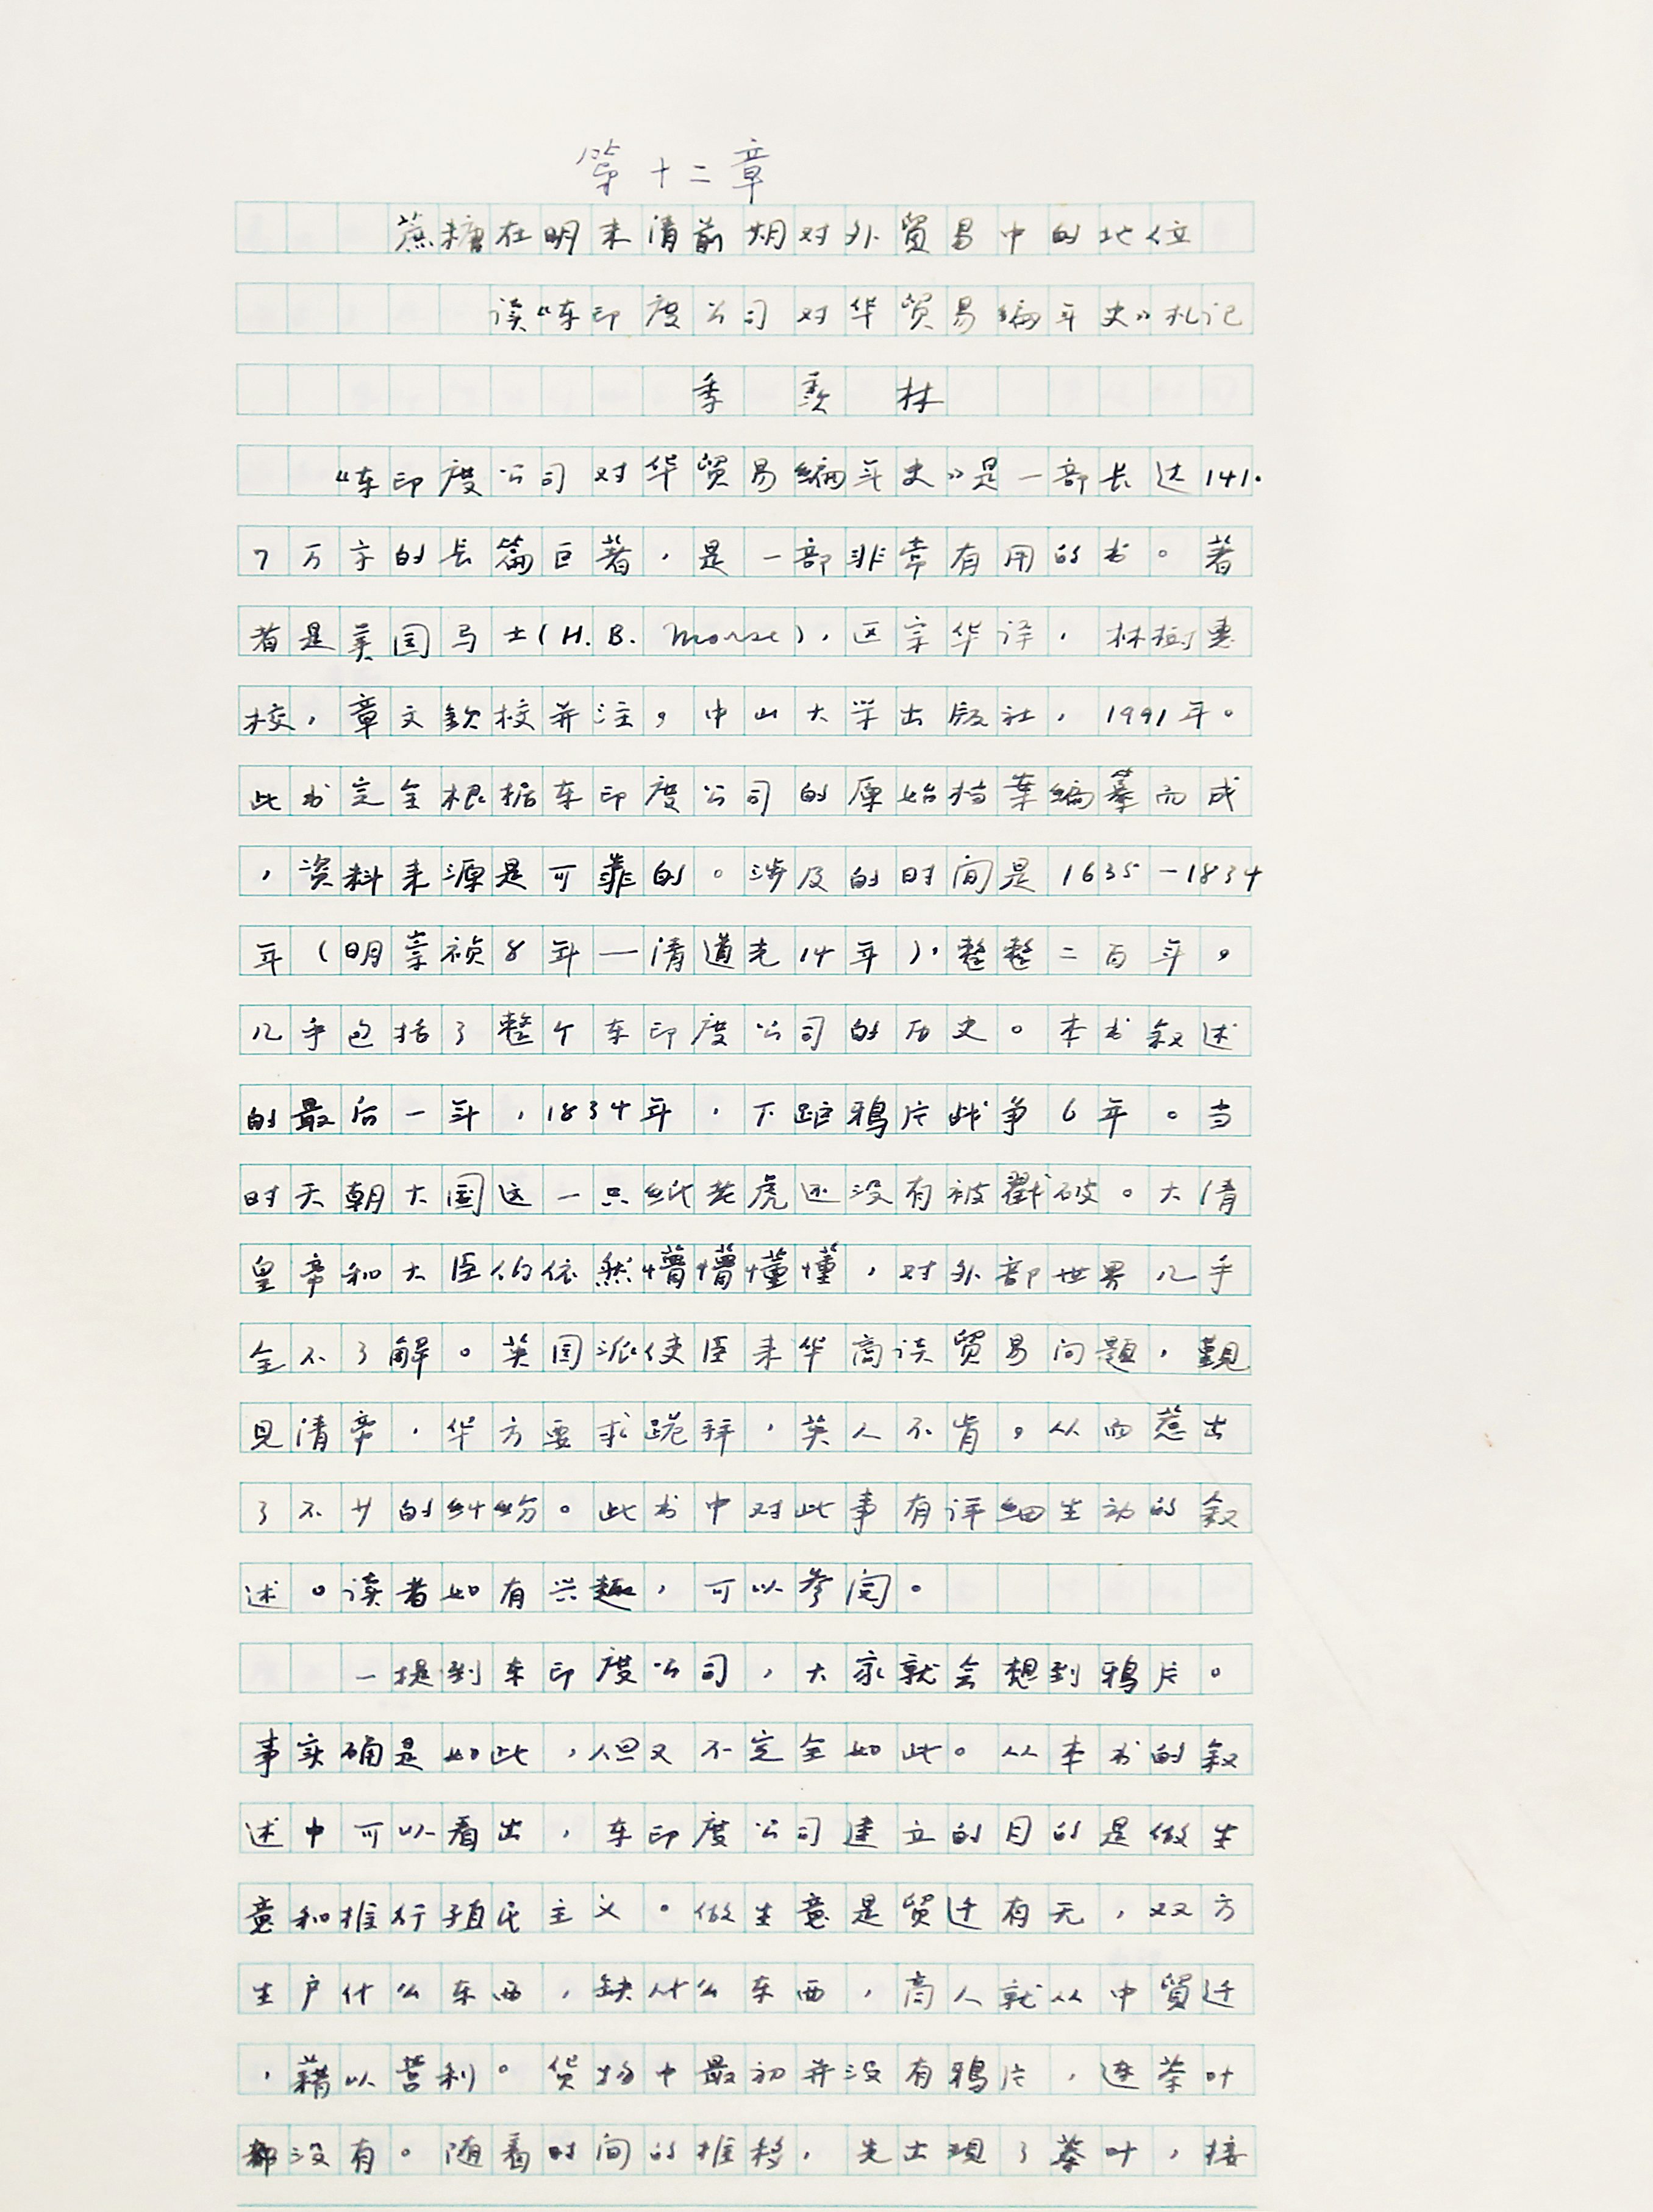 第十二章
蔗糖在明末清前期对外贸易中的地位
读《东印度公司对华贸易编年史》札记
季羡林
《东印度公司对华贸易编年史》是一部长达141.
7万字的长篇巨著，是一部非常有用的书。著
者是美国马士(H.B. Morse)，区宗华译，林树惠
校，章文钦校并注，中山大学出版社，1991年。
此书完全根据东印度公司的原始档案编纂而成
，资料来源是可靠的。涉及的时间是1635-1834
年（明崇祯8年—清道光14年），整整二百年，
几乎包括了整个东印度公司的历史。本书叙述
的最后一年，1834年，下距鸦片战争6年。当
时天朝大国这一只纸老虎还没有被戳破。大清
皇帝和大臣们依然懵懵懂懂，对外部世界几乎
全不了解。英国派使臣来华商谈贸易问题，觐
见清帝，华方要求跪拜，英人不肯，从而惹出
了不少的纠纷。此书中对此事有详细生动的叙
述。读者如有兴趣，可以参阅。
一提到东印度公司，大家就会想到鸦片。
事实确是如此，但又不完全如此。从本书的叙
述中可以看出，东印度公司建立的目的是做生
意和推行殖民主义。做生意是贸迁有无，双方
生产什么东西，缺什么东西，商人就从中贸迁
，藉以营利。货物中最初并没有鸦片，连茶叶
都没有。随着时间的推移，先出现了茶叶，接